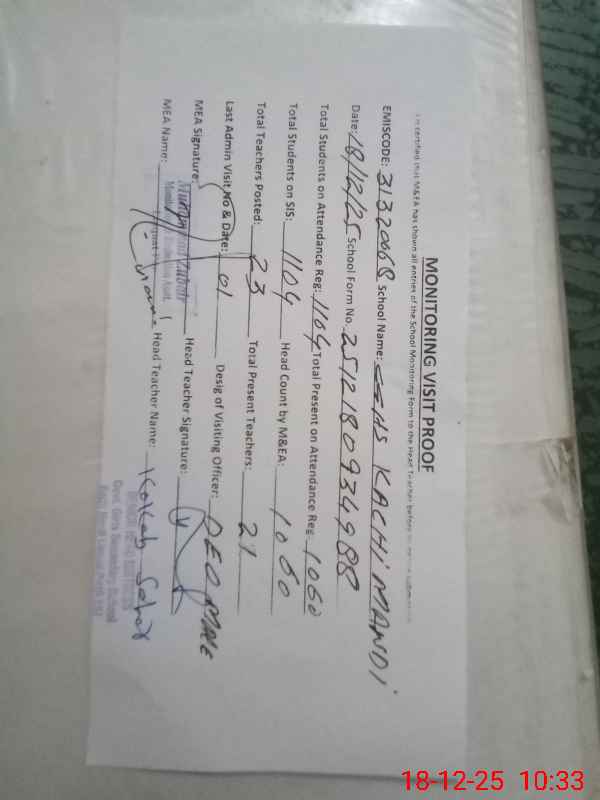 MONITORING VISIT PROOF
certified that M&EA has shown all entries of the School Monitoring Form to the Head Teacher before
EMISCODE: 31320668 School Name: GGHS KACHI MANDI
Date: 18/12/25 School Form No. 25121809934988
Total Students on Attendance Reg: 1104 Total Present on Attendance Reg: 1060
Total Students on SIS: 1104 Head Count by M&EA: 1060
Total Teachers Posted: 23 Total Present Teachers: 21
Last Admin Visit No & Date: 01 Desig of Visiting Officer: DEO MALE
MEA Signature: Head Teacher Signature:
MEA Name: Head Teacher Name: Kokab Sahar
Govt. Girls Secondary School
18-12-25 10:33